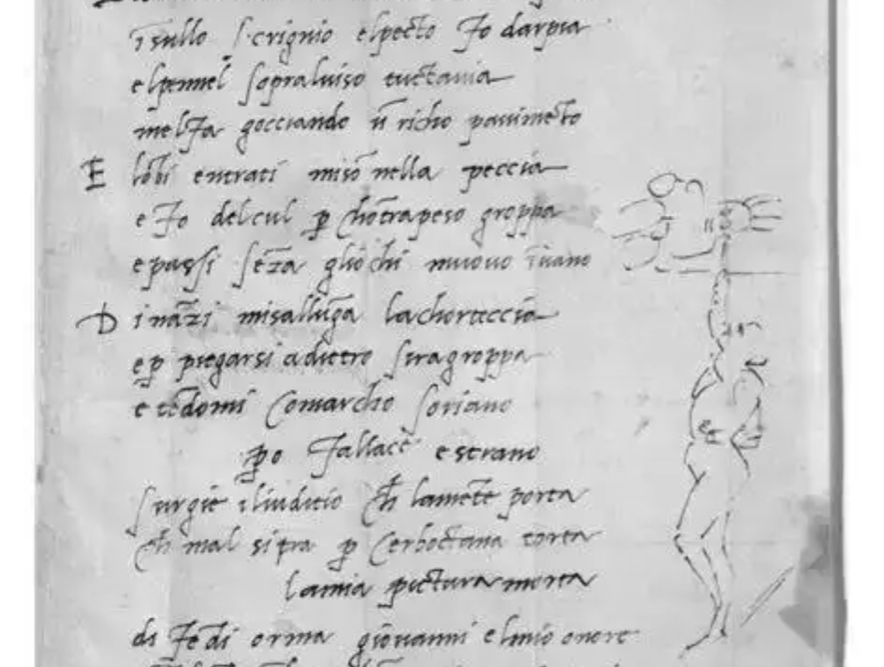 i sullo scrignio elpecto fo darpia
elpennel sopraluiso tuctavia
melfa gocciando ũ richo pavimẽto
E lõbi entrati misõ nella peccia
e fo delcul p̱ chõtrapeso groppa
e passi sẽza gliochi muovo ĩvano
D inãzi misallũga lachorteccia
e p̱ piegarsi adietro siragroppa
e tẽdomi comarcho soriano
p̱o fallace e strano
surgie iliuditio ch̃ lamẽte porta
ch̃ mal sitra p̱ cerboctana torta
lamia pictura morta
di fẽdi orma giovanni elmio onore